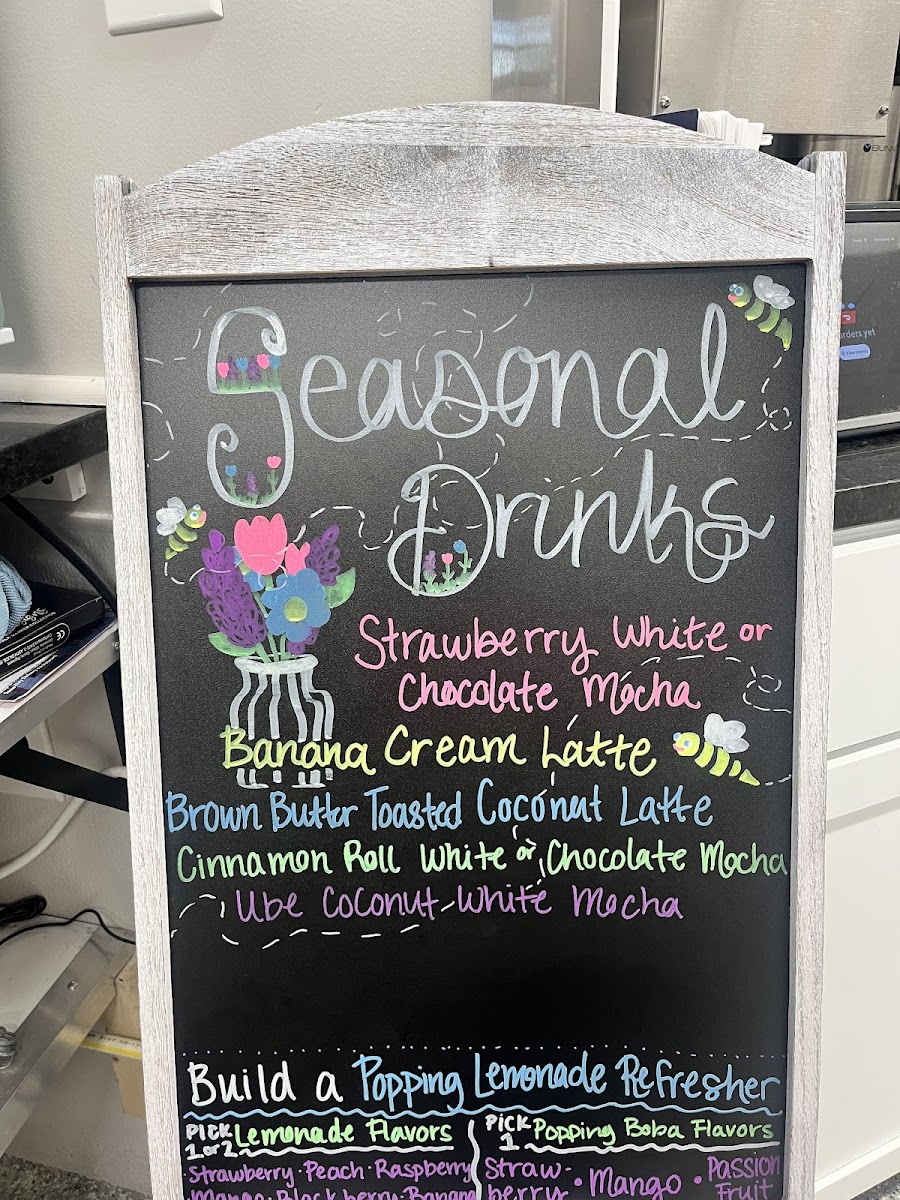 BUNN
orders yet
Seasonal
Drinks
Strawberry White or
Chocolate Mocha
Banana Cream Latte
Brown Butter Toasted Coconut Latte
Cinnamon Roll White or Chocolate Mocha
Ube Coconut White Mocha
Build a Popping Lemonade Refresher
PICK 1 or 2 Lemonade Flavors
Strawberry · Peach · Raspberry
Mango · Blackberry · Banana
PICK 1 Popping Boba Flavors
Straw-berry · Mango · Passion Fruit